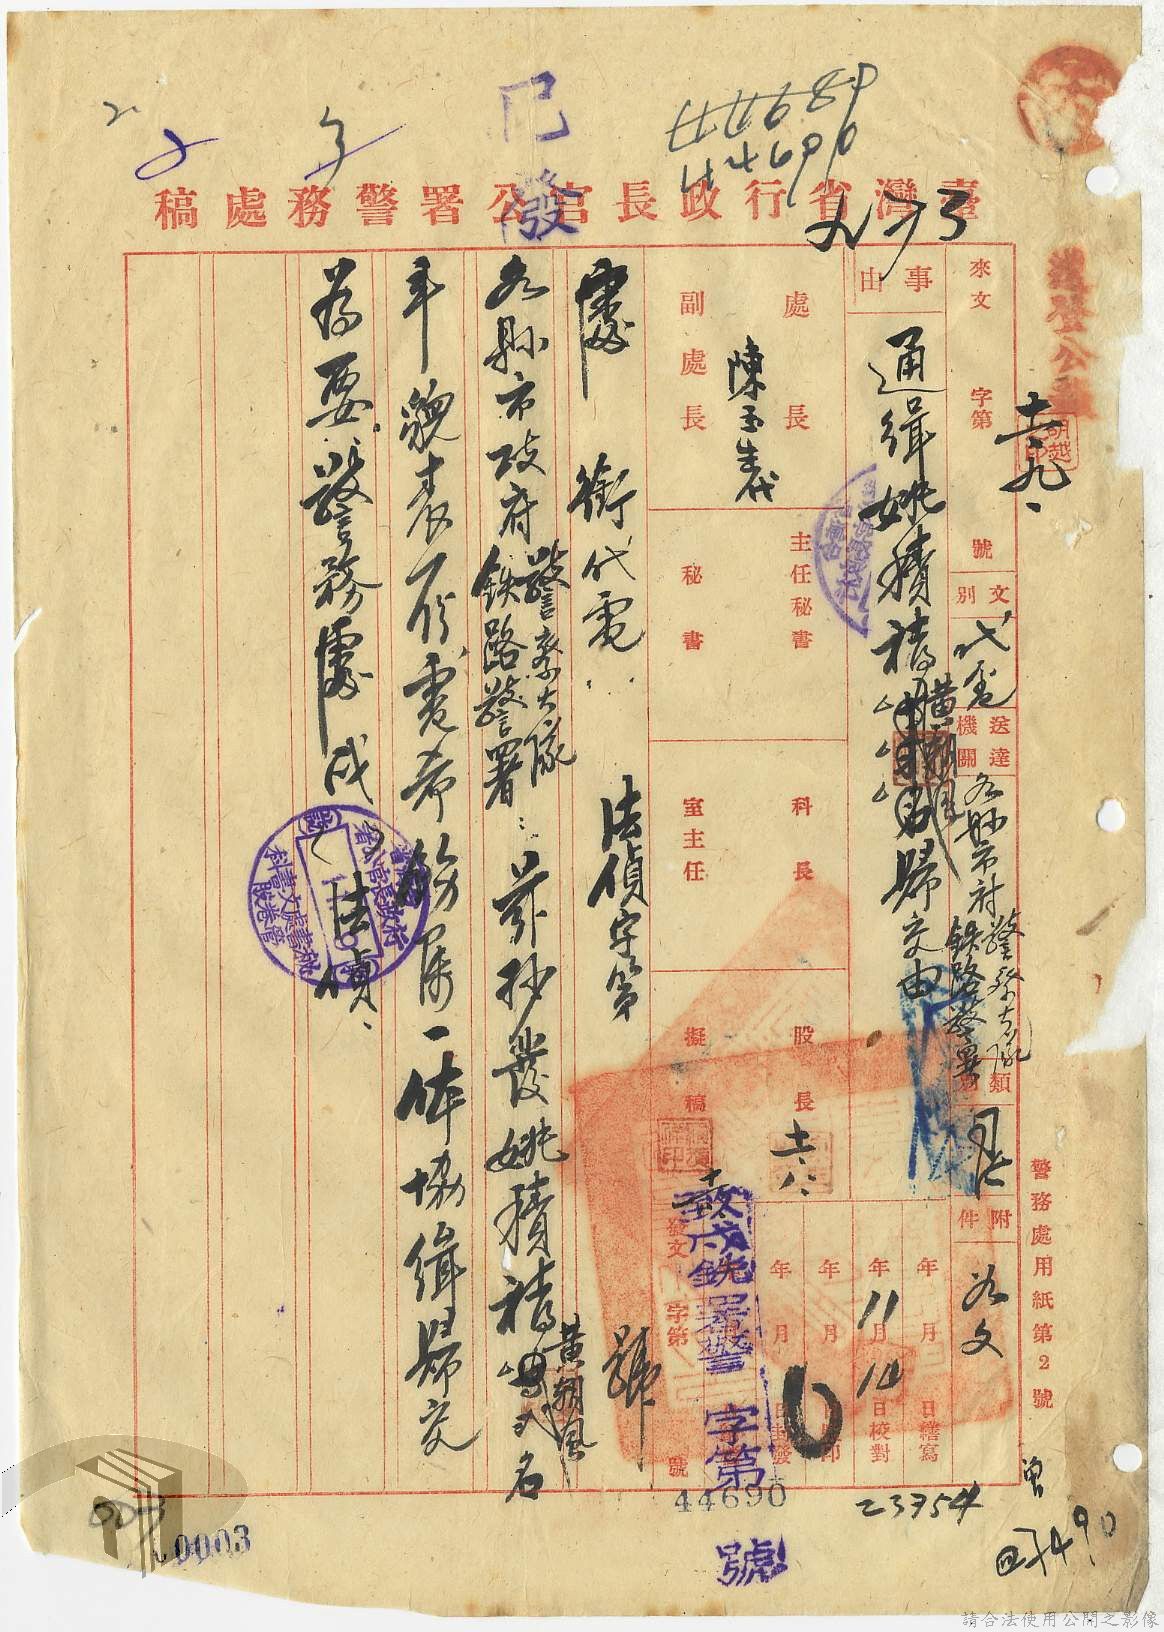 44689
44690
已發
臺灣省行政長官公署警務處稿
573
送登公報
來文 字第 號
十一、九、
文別 代電
送達機關 各縣市府 警察大隊 鐵路警署
類別
附件 如文
事由
通緝姚積禱 黃朔風 歸交由
處長
副處長
陳玉生代
主任秘書
秘書
科長
室主任
股長
十一、八、
擬稿
年 月 日繕寫
年11月14日校對
年 月 日蓋印
年 月 日封發
發文 字第 號
致戌銑署警 字第
44690
號
處銜代電 法偵字第 號
各縣市政府 警察大隊 鐵路警署：茲抄發姚積禱 黃朔風 弍名
年貌表一份電希飭屬一体協緝歸交
為要警務處戌 法偵、
警務處用紙第2號
23754
0003
請合法使用公開之影像